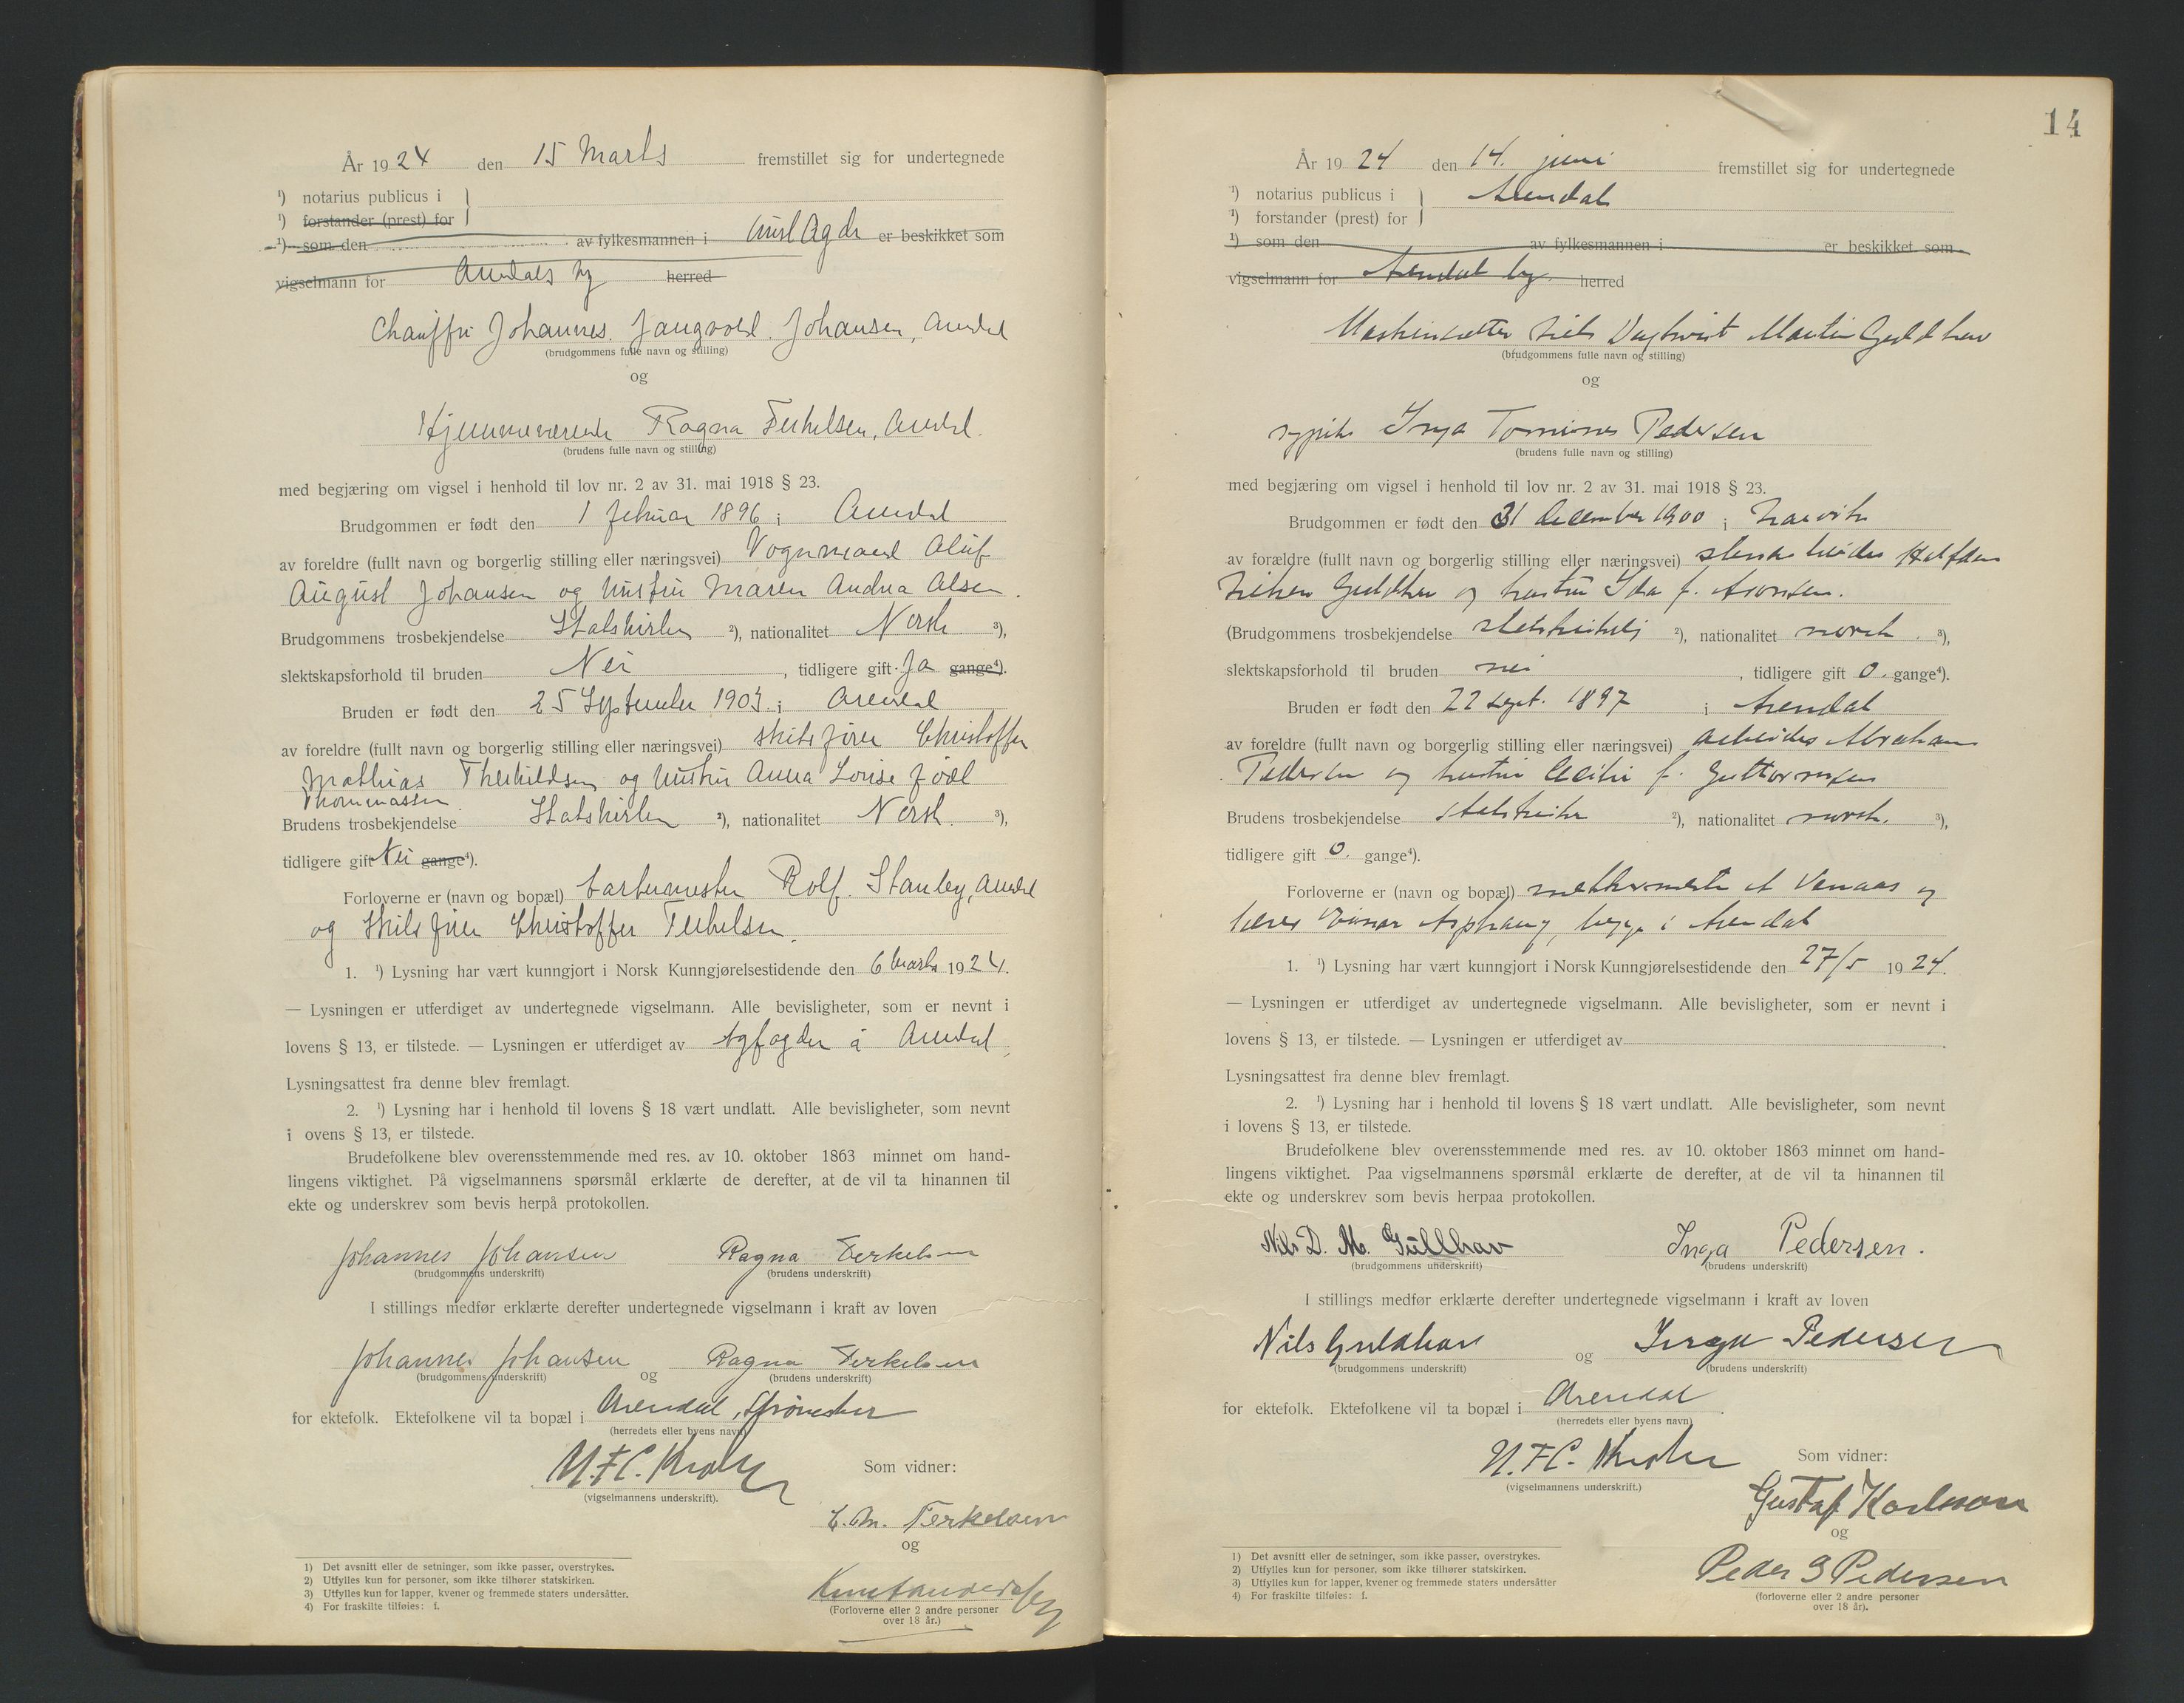 År 1924 den 15 Marts fremstillet sig for undertegnede
¹) notarius publicus i
¹) forstander (prest) for
¹) som den av fylkesmannen i Aust Agder er beskikket som
vigselmann for Arendals by herred
Chauffør Johannes Johansen, Arendal
(brudgommens fulle navn og stilling)
og
Hjemmeværende Ragna Terkelsen, Arendal.
(brudens fulle navn og stilling)
med begjæring om vigsel i henhold til lov nr. 2 av 31. mai 1918 § 23.
Brudgommen er født den 1 februar 1896 i Arendal
av foreldre (fullt navn og borgerlig stilling eller næringsvei) Vognmand Aluf
August Johansen og hustru Maren Andrea Olsen.
Brudgommens trosbekjendelse Statskirken ²), nationalitet Norsk ³),
slektskapsforhold til bruden Nei, tidligere gift Ja gange⁴).
Bruden er født den 25 September 1903 i Arendal
av foreldre (fullt navn og borgerlig stilling eller næringsvei) skibsfører Christoffer
Mathias Therkildsen og hustru Anna Louise født
Thommassen
Brudens trosbekjendelse Statskirken ²), nationalitet Norsk. ³),
tidligere gift Nei gange⁴).
Forloverne er (navn og bopæl) Rolf Stanley, Arendal
og Skibsfører Christoffer Terkelsen.
1. ¹) Lysning har vært kunngjort i Norsk Kunngjørelsestidende den 6 Marts 1924.
— Lysningen er utferdiget av undertegnede vigselmann. Alle bevisligheter, som er nevnt i
lovens § 13, er tilstede. — Lysningen er utferdiget av Arendal,
Lysningsattest fra denne blev fremlagt.
2. ¹) Lysning har i henhold til lovens § 18 vært undlatt. Alle bevisligheter, som nevnt
i ovens § 13, er tilstede.
Brudefolkene blev overensstemmende med res. av 10. oktober 1863 minnet om hand-
lingens viktighet. På vigselmannens spørsmål erklærte de derefter, at de vil ta hinannen til
ekte og underskrev som bevis herpå protokollen.
Johannes Johansen Ragna Terkelsen
(brudgommens underskrift) (brudens underskrift)
I stillings medfør erklærte derefter undertegnede vigselmann i kraft av loven
Johannes Johansen og Ragna Terkelsen
(brudgommens underskrift) (brudens underskrift)
for ektefolk. Ektefolkene vil ta bopæl i Arendal,
(herredets eller byens navn)
N.F.C. Krohn
(vigselmannens underskrift).
Som vidner:
C. M. Terkelsen
og
(Forloverne eller 2 andre personer
over 18 år.)
1) Det avsnitt eller de setninger, som ikke passer, overstrykes.
2) Utfylles kun for personer, som ikke tilhører statskirken.
3) Utfylles kun for lapper, kvener og fremmede staters undersåtter.
4) For fraskilte tilføies: f.
14
År 1924 den 14. juni fremstillet sig for undertegnede
¹) notarius publicus i Arendal
¹) forstander (prest) for
¹) som den av fylkesmannen i er beskikket som
vigselmann for Arendal by. herred
Maskinsetter Nils Dagkvist Martin Guldhav
(brudgommens fulle navn og stilling)
og
sypike Inga Pedersen
(brudens fulle navn og stilling)
med begjæring om vigsel i henhold til lov nr. 2 av 31. mai 1918 § 23.
Brudgommen er født den 31 december 1900 i Narvik
av forældre (fullt navn og borgerlig stilling eller næringsvei) Halfdan
Guldhav og hustru Ida f. Aronsen.
(Brudgommens trosbekjendelse ²), nationalitet norsk. ³),
slektskapsforhold til bruden nei, tidligere gift 0. gange⁴).
Bruden er født den 22 sept. 1897 i Arendal
av foreldre (fullt navn og borgerlig stilling eller næringsvei) arbeider Abraham
Pedersen og hustru Cecilie f. Guttormsen
Brudens trosbekjendelse statskirken ²), nationalitet norsk. ³),
tidligere gift 0. gange⁴).
Forloverne er (navn og bopæl) Vanaas og
Einar begge i Arendal
1. ¹) Lysning har vært kunngjort i Norsk Kunngjørelsestidende den 27/5 1924.
— Lysningen er utferdiget av undertegnede vigselmann. Alle bevisligheter, som er nevnt i
lovens § 13, er tilstede. — Lysningen er utferdiget av
Lysningsattest fra denne blev fremlagt.
2. ¹) Lysning har i henhold til lovens § 18 vært undlatt. Alle bevisligheter, som nevnt
i lovens § 13, er tilstede.
Brudefolkene blev overensstemmende med res. av 10. oktober 1863 minnet om hand-
lingens viktighet. Paa vigselmannens spørsmål erklærte de derefter, at de vil ta hinannen til
ekte og underskrev som bevis herpaa protokollen.
Nils D. M. Gullhav Inga Pedersen.
(brudgommens underskrift) (brudens underskrift)
I stillings medfør erklærte derefter undertegnede vigselmann i kraft av loven
Nils Guldhav og Inga Pedersen
(brudgommens underskrift) (brudens underskrift)
for ektefolk. Ektefolkene vil ta bopæl i Arendal.
(herredets eller byens navn)
N.F.C. Krohn
(vigselmannens underskrift.)
Som vidner:
Gustaf Karlsson
og
Peder G Pedersen
(forloverne eller 2 andre personer
over 18 år).
1) Det avsnitt eller de setninger, som ikke passer, overstrykes.
2) Utfylles kun for personer, som ikke tilhører statskirken.
3) Utfylles kun for lapper, kvener og fremmede staters undersåtter
4) For fraskilte tilføies: f.